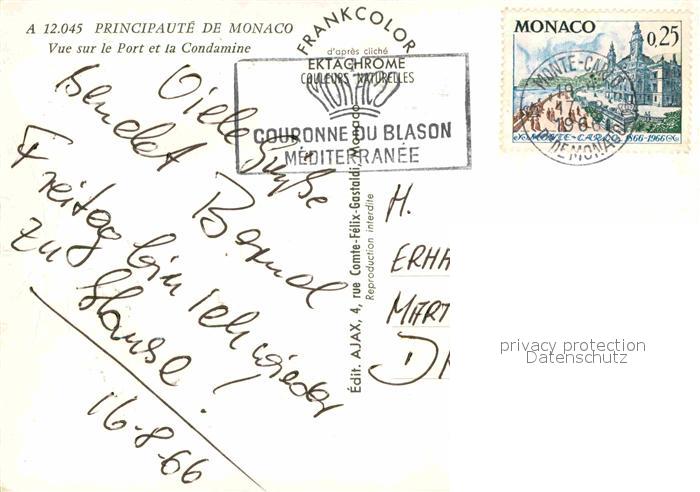 A 12.045 PRINCIPAUTÉ DE MONACO
Vue sur le Port et la Condamine
FRANKCOLOR
d'après cliché
EKTACHROME
COULEURS NATURELLES
MONACO
COURONNE DU BLASON
MÉDITERRANÉE
MONACO 0,25
MONTE-CARLO
1966
MONTE-CARLO 1866-1966
Viele Grüße
sendet Bernd
Freitag bin ich wieder
zu Hause!
16-8-66
Édit. AJAX, 4, rue Comte-Félix-Gastaldi, Monaco
Reproduction interdite
H.
ERHA
MART
privacy protection
Datenschutz